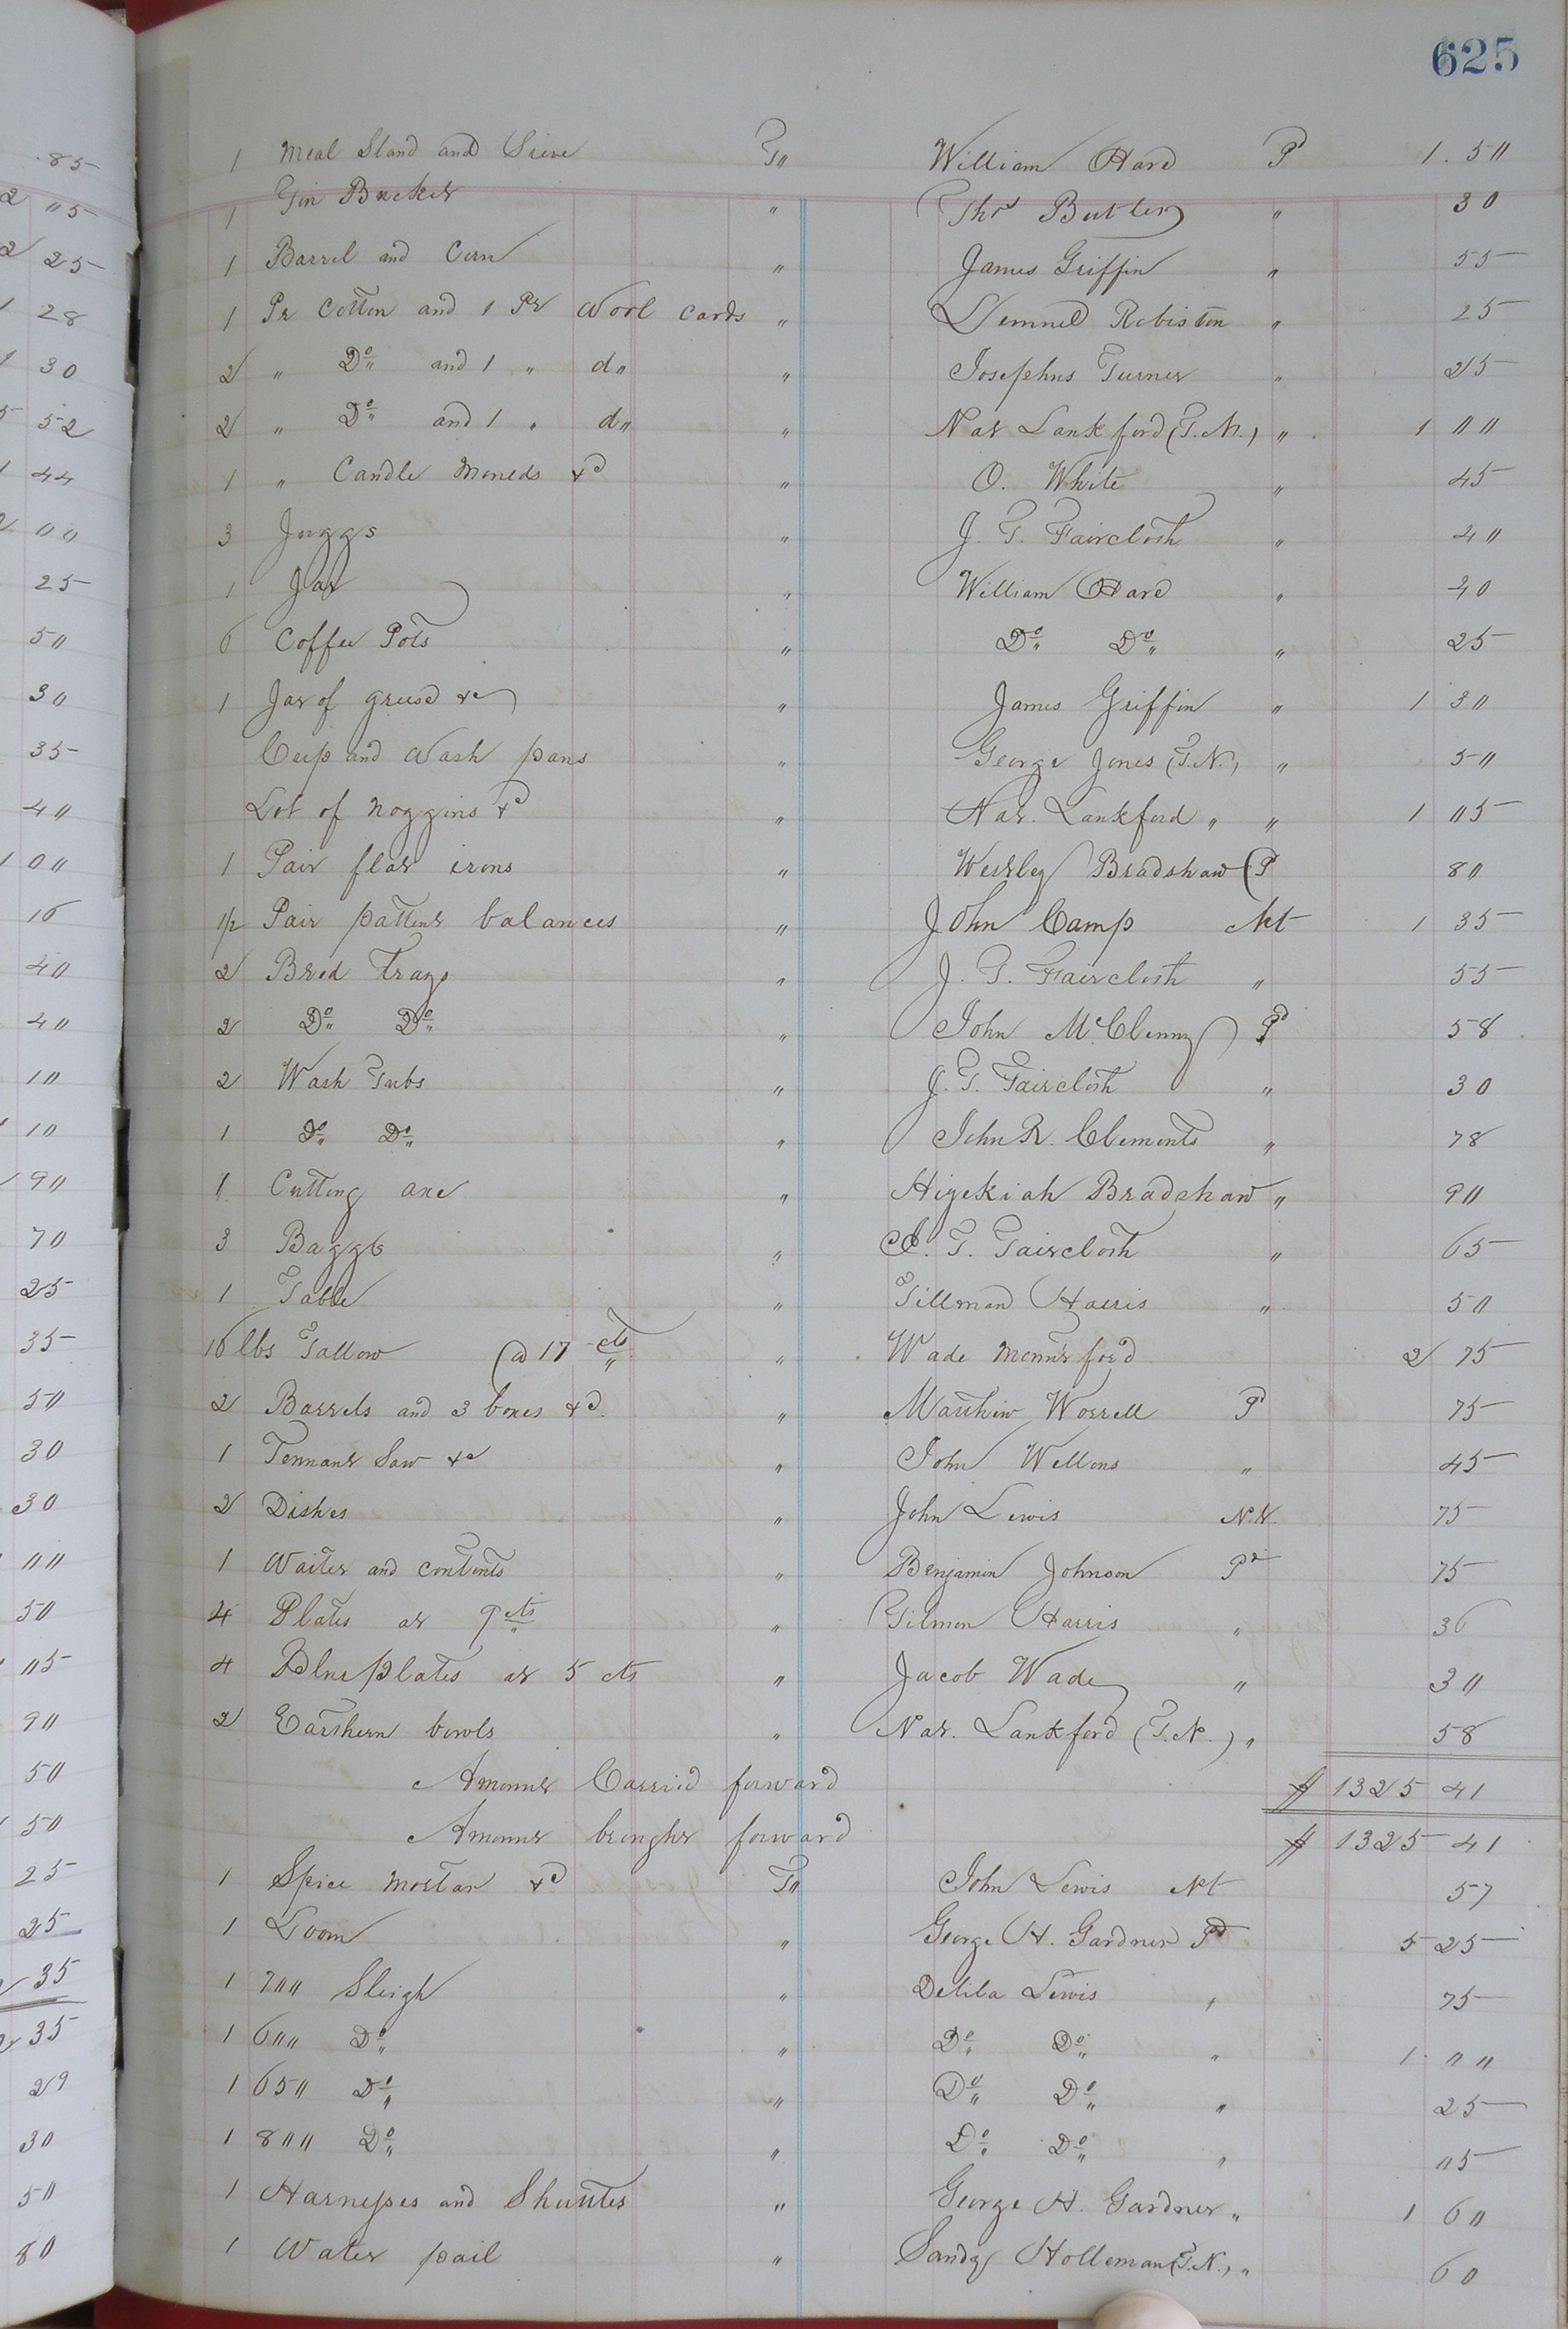 625
1 Meal Stand and Sieve To William Hare Pd 1.50
1 Tin Bucket " Thos Butler " 30
1 Barrel and Corn " James Griffin " 55
1 Pr Cotton and 1 Pr Wool cards " Lemuel Robiston " 25
2 " Do and 1 " do " Josephus Turner " 25
2 " Do and 1 " do " Nat Lankford (F.N.) " 1 00
1 " Candle Moulds &c " O. White " 45
3 Juggs " J. T. Faircloth " 40
1 Jar " William Hare " 40
6 Coffee Pots " Do Do " 25
1 Jar of grease &c " James Griffin " 1 30
Cup and Wash pans " George Jones (F.N.) " 50
Lot of noggins &c " Nat. Lankford " " 1 05
1 Pair flat irons " Westley Bradshaw Pd 80
1 Pair pattent balances " John Camp Nt 1 35
2 Bred Trays " J. T. Faircloth " 55
2 Do Do " John McClenny Pd 58
2 Wash Tubs " J. T. Faircloth " 30
1 Do Do " John R. Clements " 78
1 Cutting axe " Hizekiah Bradshaw " 90
3 Baggs " J. T. Faircloth " 65
1 Table " Tillman Harris " 50
16 lbs Tallow @ 17 cts " Wade Mountford 2 75
2 Barrels and 3 boxes &c " Matthew Worrell Pd 75
1 Tennant Saw &c " John Wellons " 45
2 Dishes " John Lewis Nt. 75
1 Waiter and contents " Benjamin Johnson Pd 75
4 Plates at 9 cts " Tilmon Harris " 36
4 Blue plates at 5 cts " Jacob Wade " 30
2 Earthern bowls " Nat. Lankford (F.N.) " 58
Amount Carried forward $ 1325 41
Amount brought forward $ 1325 41
1 Spice mortar &c To John Lewis Nt 57
1 Loom " George H. Gardner Pd 5 25
1 700 Sleigh " Delila Lewis " 75
1 600 Do " Do Do " 1 00
1 650 Do " Do Do " 25
1 800 Do " Do Do " 05
1 Harnesses and Shuttles " George H. Gardner " 1 60
1 Water pail " Sandy Holleman (F.N.) " 60